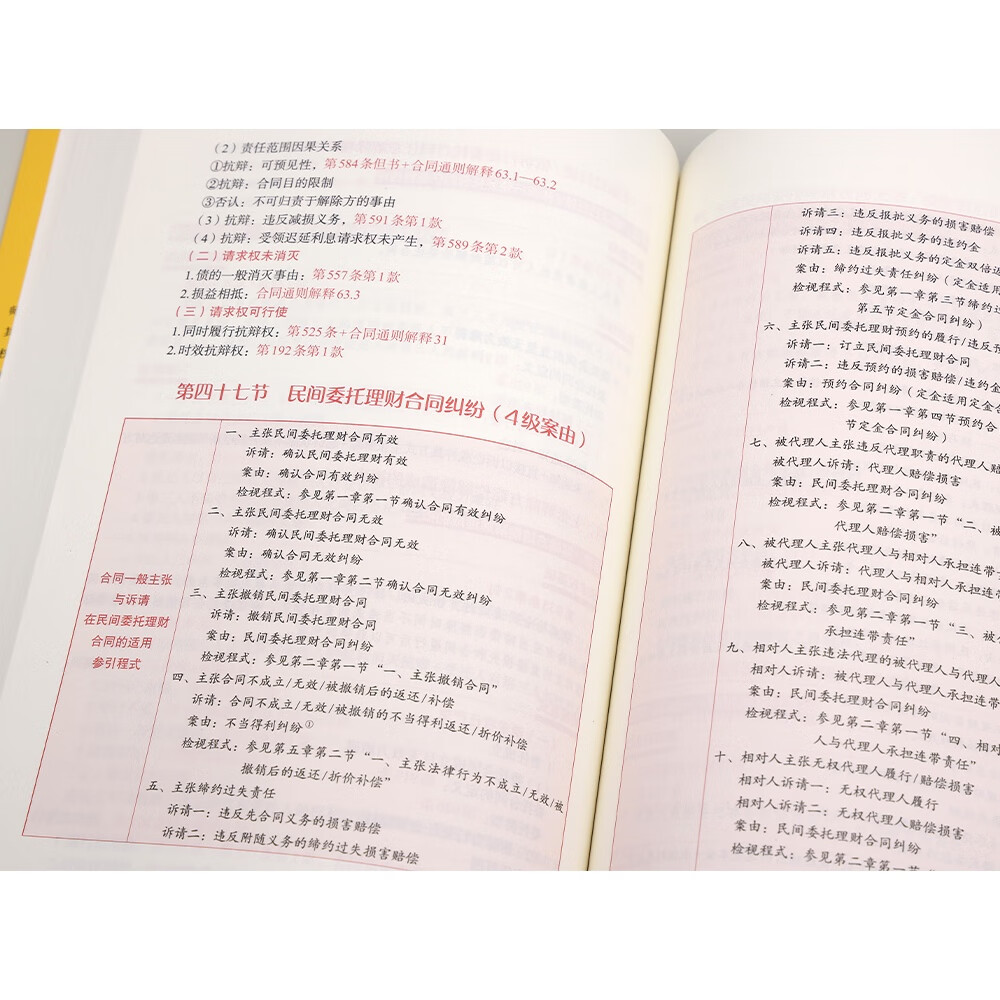 (2)责任范围因果关系
①抗辩：可预见性，第584条但书+合同通则解释63.1—63.2
②抗辩：合同目的限制
③否认：不可归责于解除方的事由
(3)抗辩：违反减损义务，第591条第1款
(4)抗辩：受领迟延利息请求权未产生，第589条第2款
(二)请求权未消灭
1.债的一般消灭事由：第557条第1款
2.损益相抵：合同通则解释63.3
(三)请求权可行使
1.同时履行抗辩权：第525条+合同通则解释31
2.时效抗辩权：第192条第1款
第四十七节 民间委托理财合同纠纷(4级案由)
合同一般主张
与诉请
在民间委托理财
合同的适用
参引程式
一、主张民间委托理财合同有效
诉请：确认民间委托理财有效
案由：确认合同有效纠纷
检视程式：参见第一章第一节确认合同有效纠纷
二、主张民间委托理财合同无效
诉请：确认民间委托理财合同无效
案由：确认合同无效纠纷
检视程式：参见第一章第二节确认合同无效纠纷
三、主张撤销民间委托理财合同
诉请：撤销民间委托理财合同
案由：民间委托理财合同纠纷
检视程式：参见第二章第一节“一、主张撤销合同”
四、主张合同不成立/无效/被撤销后的返还/补偿
诉请：合同不成立/无效/被撤销的不当得利返还/折价补偿
案由：不当得利纠纷①
检视程式：参见第五章第二节“一、主张法律行为不成立/无效/被
撤销后的返还/折价补偿”
五、主张缔约过失责任
诉请一：违反先合同义务的损害赔偿
诉请二：违反附随义务的缔约过失损害赔偿
诉请三：违反报批义务的损害赔偿
诉请四：违反报批义务的违约金
诉请五：违反报批义务的定金双倍返
案由：缔约过失责任纠纷(定金适用
检视程式：参见第一章第三节缔约过
第五节定金合同纠纷)
六、主张民间委托理财预约的履行/违反预
诉请一：订立民间委托理财合同
诉请二：违反预约的损害赔偿/违约金
案由：预约合同纠纷(定金适用定金合
检视程式：参见第一章第四节预约合
节定金合同纠纷)
七、被代理人主张违反代理职责的代理人赔
被代理人诉请：代理人赔偿损害
案由：民间委托理财合同纠纷
检视程式：参见第二章第一节“二、被
代理人赔偿损害”
八、被代理人主张代理人与相对人承担连带
被代理人诉请：代理人与相对人承担连带
案由：民间委托理财合同纠纷
检视程式：参见第二章第一节“三、被代
承担连带责任”
九、相对人主张违法代理的被代理人与代理人
相对人诉请：被代理人与代理人承担连带
案由：民间委托理财合同纠纷
检视程式：参见第二章第一节“四、相对
人与代理人承担连带责任”
十、相对人主张无权代理人履行/赔偿损害
相对人诉请一：无权代理人履行
相对人诉请二：无权代理人赔偿损害
案由：民间委托理财合同纠纷
检视程式：参见第二章第一节“